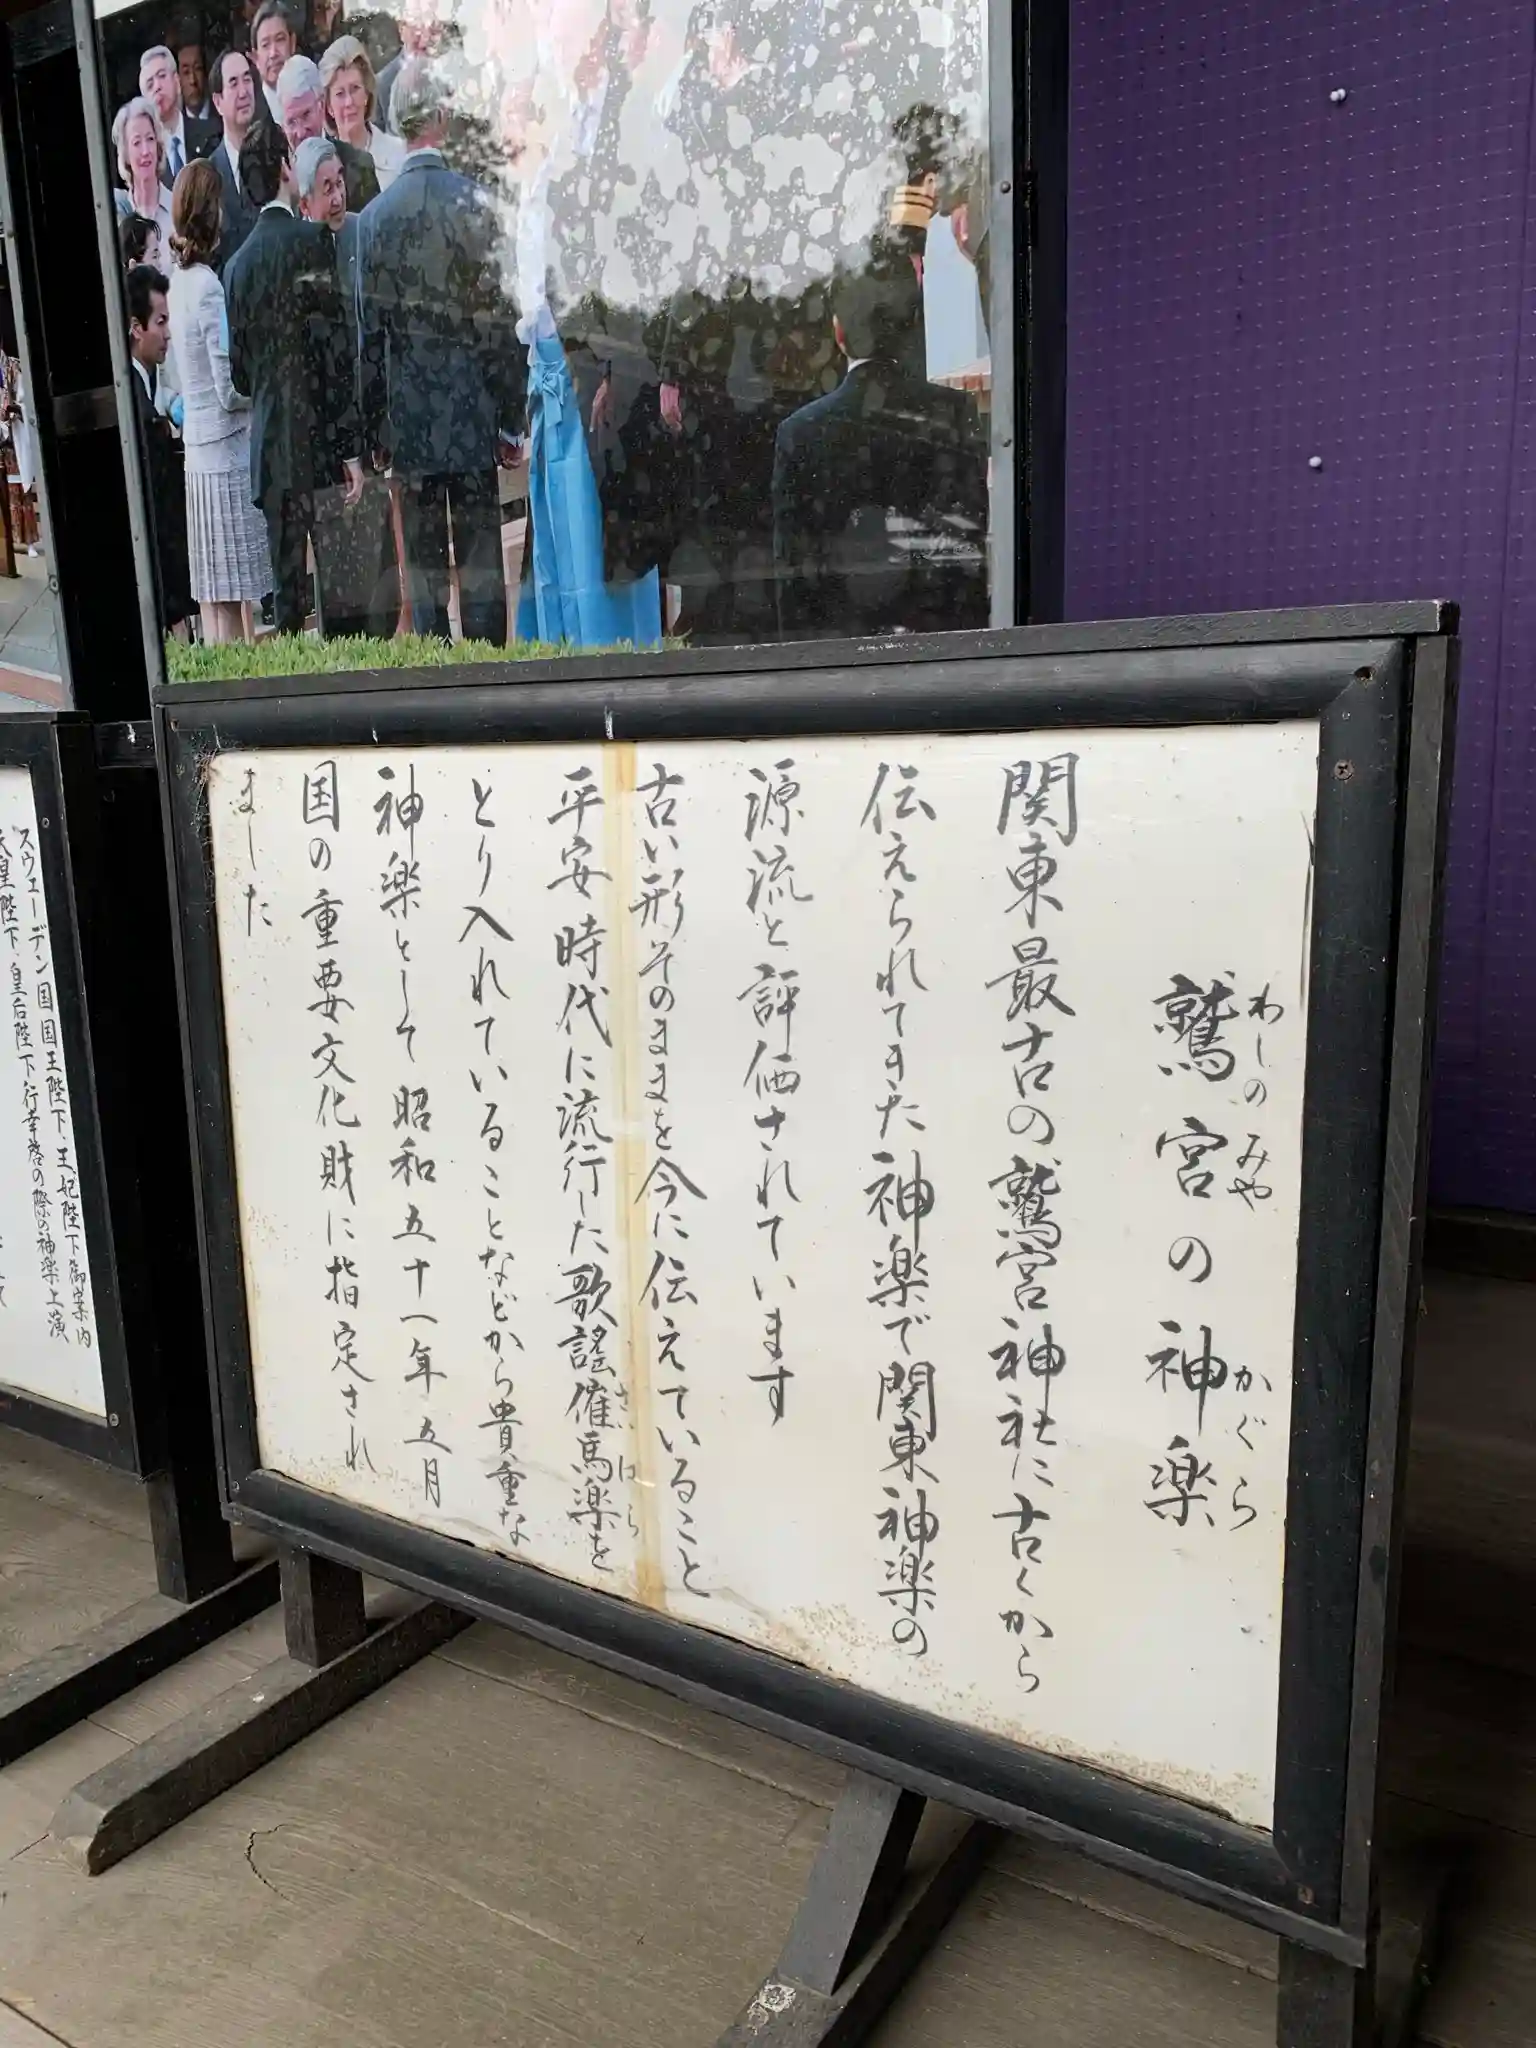 鷲宮の神楽
わしのみや かぐら
関東最古の鷲宮神社に古くから
伝えられてきた神楽で関東神楽の
源流と評価されています
古い形そのままを今に伝えていること
平安時代に流行した歌謡催馬楽を
さいばら
とり入れていることなどから貴重な
神楽として昭和五十一年五月
国の重要文化財に指定され
ました
スウェーデン国国王陛下、王妃陛下御案内
天皇陛下、皇后陛下行幸啓の際の神楽上演